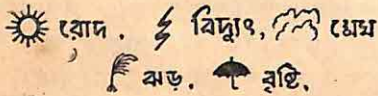 রোদ. বিদ্যুৎ, মেঘ
ঝড়. বৃষ্টি.